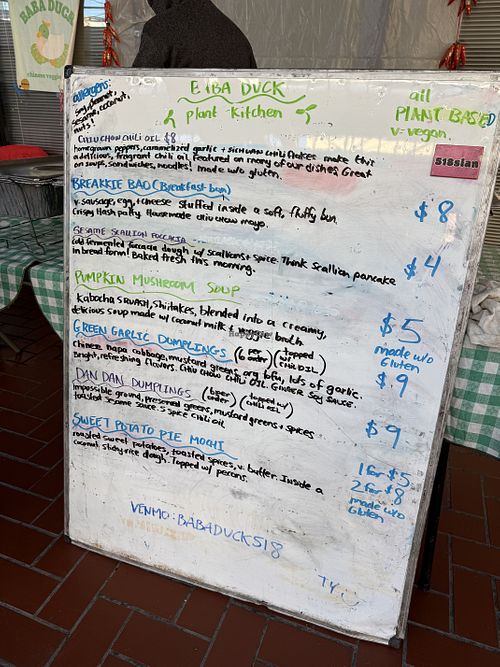 BABA DUCK
chinese veggie
allergens:
soy, peanut,
sesame, coconut,
nuts!
BABA DUCK
plant Kitchen
all
PLANT BASED
V = vegan
518sian
CHIU CHOW CHILI OIL $8
homegrown peppers, caramelized garlic + SICHUAN CHILI flakes make this
a delicious, fragrant chili oil. Featured on many of our dishes. Great
on soups, sandwiches, noodles! made w/o gluten.
BREAKKIE BAO (Breakfast bun)
V sausage, egg, + cheese stuffed inside a soft, fluffy bun.
Crispy Hash patty. Housemade chiu chow mayo.
$8
SESAME SCALLION FOCCACIA
Cold fermented foccacia dough w/ scallions + spice. Think scallion pancake
in bread form! Baked fresh this morning.
$4
PUMPKIN MUSHROOM SOUP
Kabocha SQUASH, Shiitakes, blended into a creamy,
delicious soup made w/ coconut milk + veggie broth.
$5
made w/o
Gluten
GREEN GARLIC DUMPLINGS (6 per order) (topped w/ CHILI OIL)
Chinese napa cabbage, mustard greens, org tofu, lots of garlic.
Bright, refreshing flavors. CHIU CHOW CHILI OIL. GINGER SOY SAUCE.
$9
DAN DAN DUMPLINGS (6 per order) (topped w/ CHILI OIL)
Impossible ground, preserved greens, mustard greens + spices
toasted sesame sauce. 5 spice chili oil.
$9
SWEET POTATO PIE MOCHI
roasted sweet potatoes, toasted spices, v. butter. Inside a
coconut sticky rice dough. Topped w/ pecans.
1 for $5
2 for $8
made w/o
Gluten
VENMO: BABADUCK518
TY